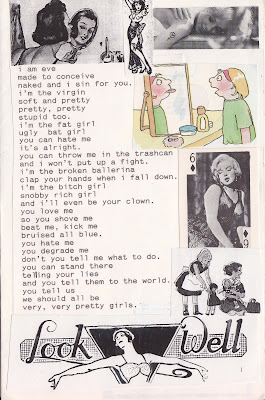 i am eve
made to conceive
naked and i sin for you.
i'm the virgin
soft and pretty
pretty, pretty
stupid too.
i'm the fat girl
ugly  bat girl
you can hate me
it's alright.
you can throw me in the trashcan
and i won't put up a fight.
i'm the broken ballerina
clap your hands when i fall down.
i'm the bitch girl
snobby rich girl
and i'll even be your clown.
you love me
so you shove me
beat me, kick me
bruised all blue.
you hate me
you degrade me
don't you tell me what to do.
you can stand there
telling your lies
and you tell them to the world.
you tell us
we should all be
very, very pretty girls.
6
9
Look Well